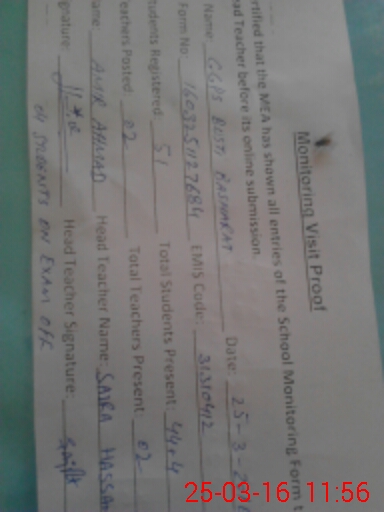 Monitoring Visit Proof
rtified that the MEA has shown all entries of the School Monitoring Form t
ad Teacher before its online submission.
Name: GGPS BASTI BASHARAT Date: 25-3-
Form No: EMIS Code: 31310412
tudents Registered: 51 Total Students Present: 44+4
eachers Posted: 02 Total Teachers Present 02
ame: AMIR AHMAD Head Teacher Name: SAIRA HASSAN
gnature: Head Teacher Signature:
04 STUDENTS ON EXAM OFF
25-03-16 11:56